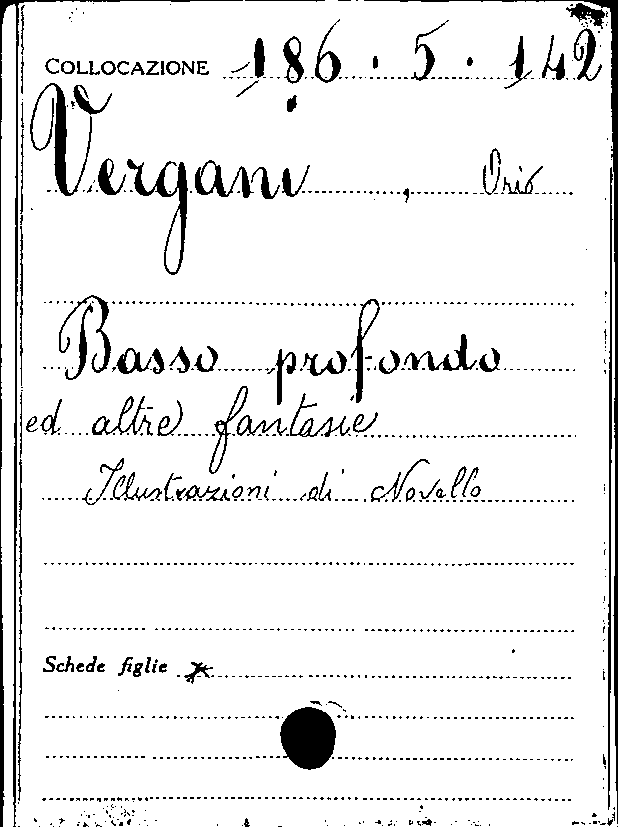 COLLOCAZIONE 186 . 5 . 142
Vergani , Orio
Basso profondo
ed altre fantasie
Illustrazioni di Novello
Schede figlie